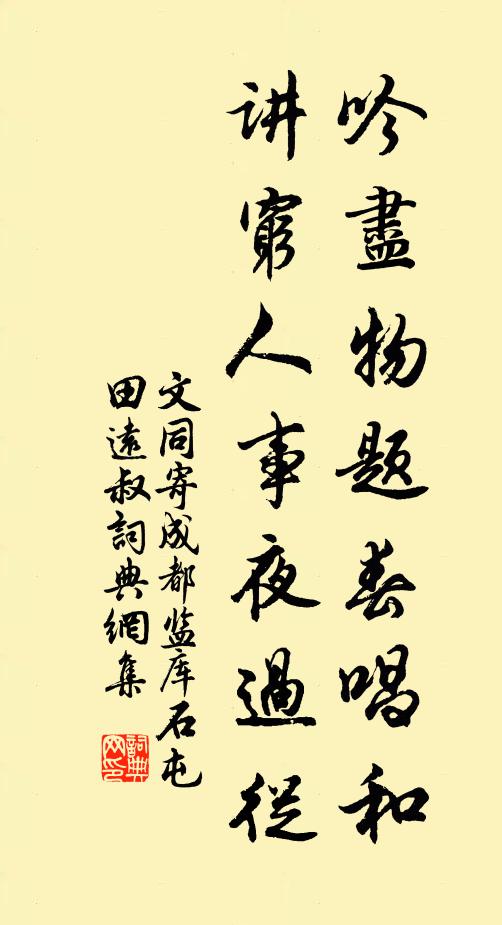 吟盡物题春唱和
讲窮人事夜過從
文同寄成都监库石屯
田遠叔詞典網集
詞典
网印